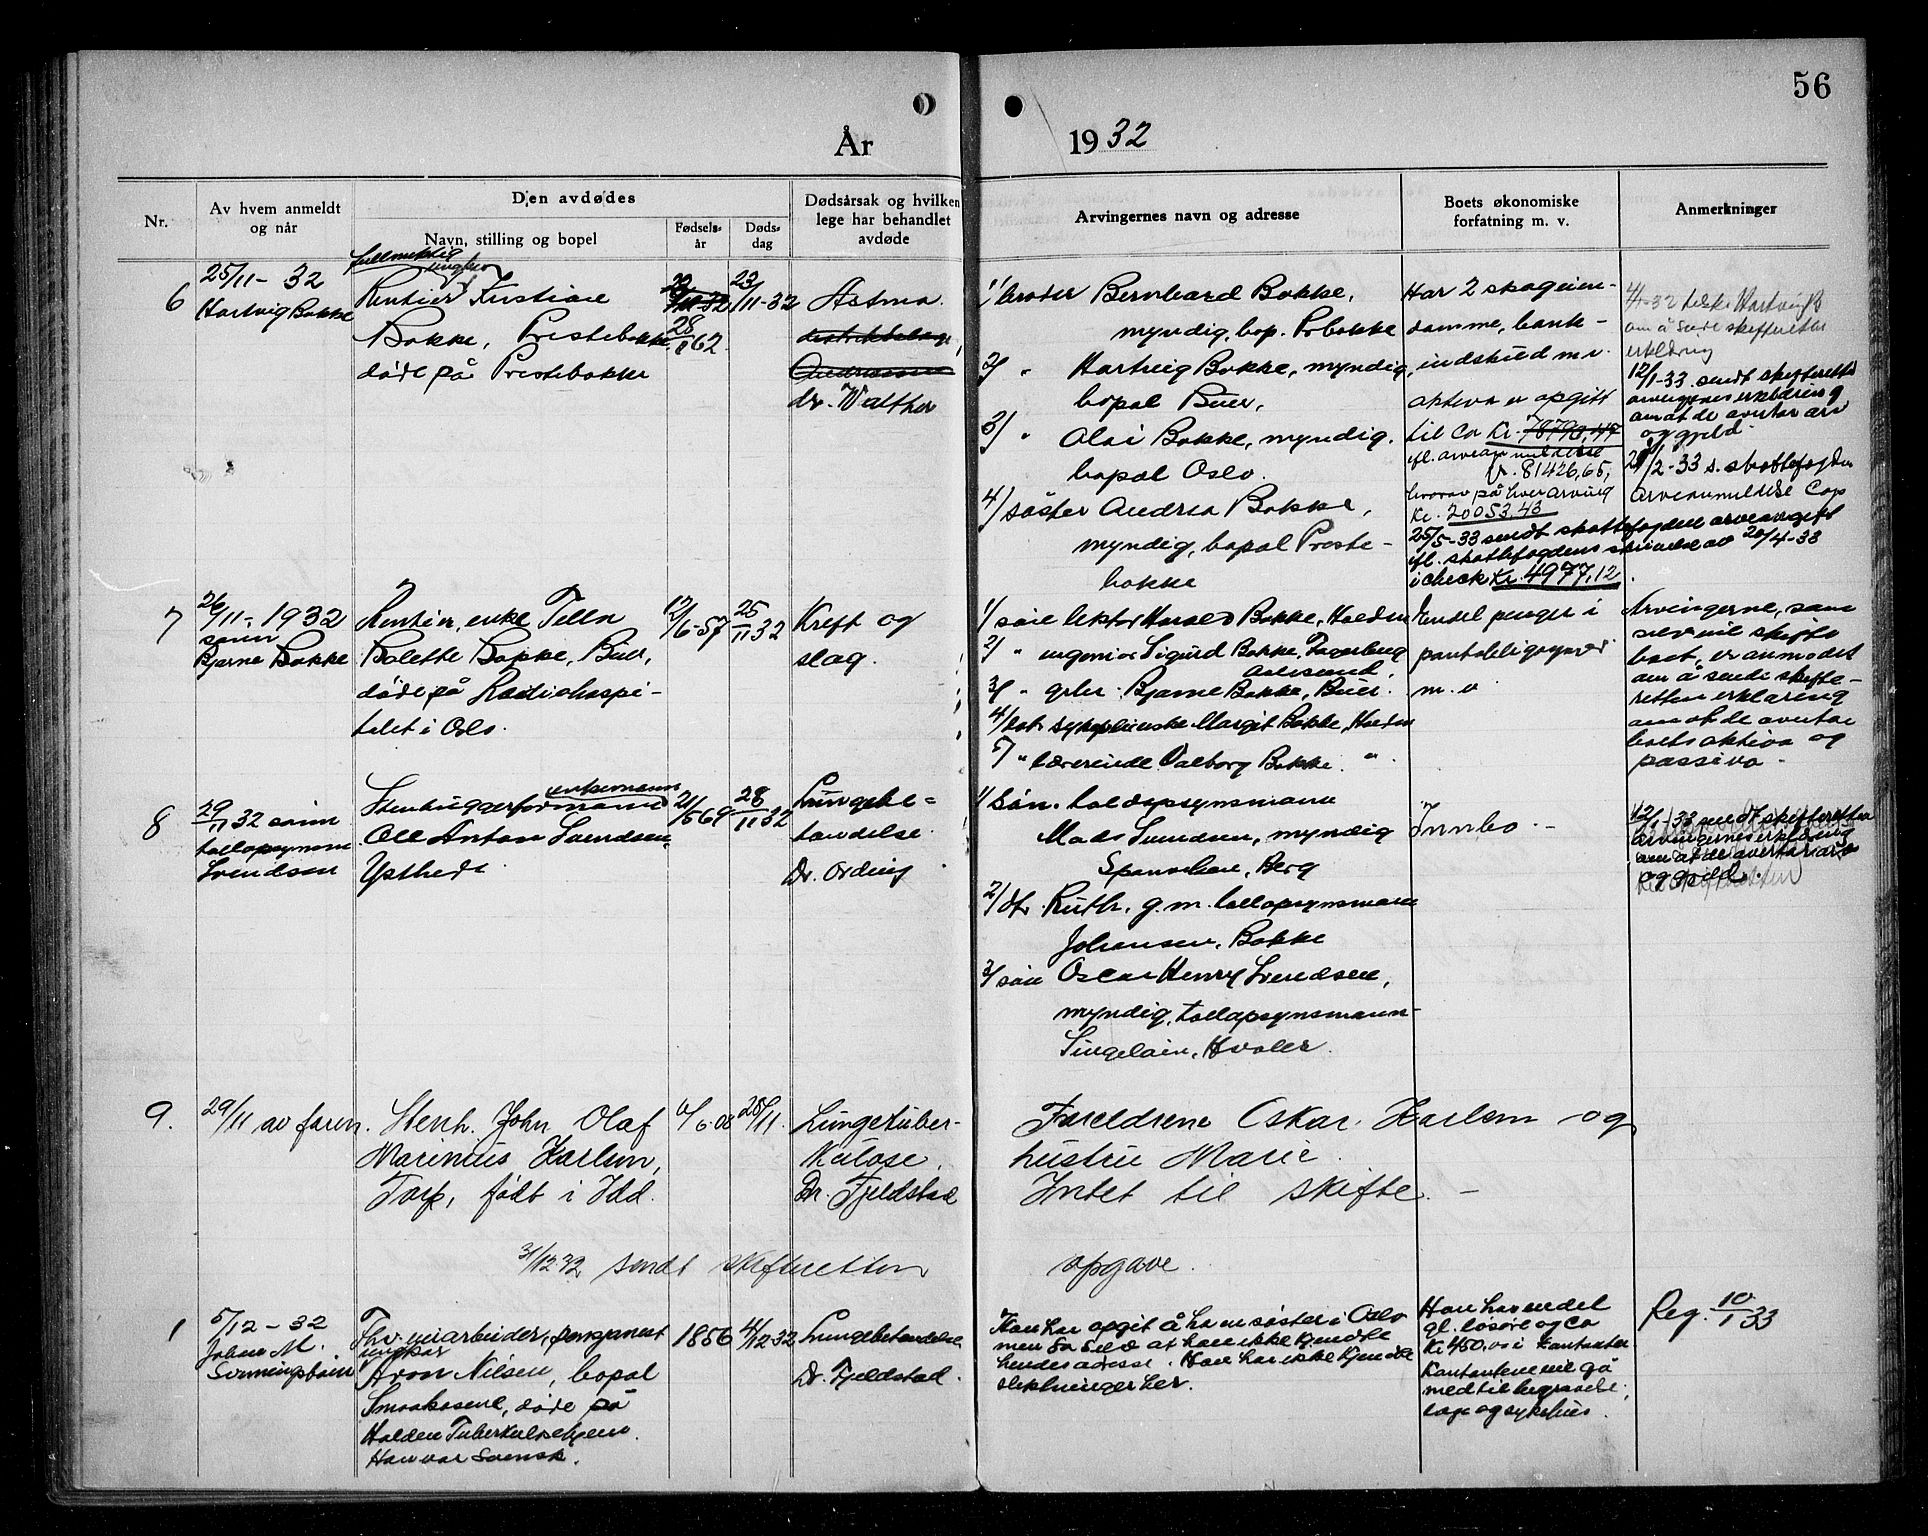 56
År 1932
Nr.
Av hvem anmeldt og når
Den avdødes
Navn, stilling og bopel
Fødselsår
Dødsdag
Dødsårsak og hvilken lege har behandlet avdøde
Arvingernes navn og adresse
Boets økonomiske forfatning m. v.
Anmerkninger
6
25/11-32
Hartvig Bakke
fullmektig
ungkar
Rentier Kristian
Bakke, Prestebakke,
døde på Prestebakke
28/8 62
23/11-32
Astma.
dr. Walther
1/ broder Bernhard Bakke,
myndig, bop. Prbakke
2/ " Hartvig Bakke, myndig,
bopal Buer,
3/ " Olai Bakke, myndig.
bopal Oslo.
4/ søster Andrea Bakke,
myndig, bopal Preste-
bakke
Har 2 skogeien-
domme, bank-
indskud m.v.
aktiva er opgitt
til Ca Kr. 78790,47
Kr. 81426,65,
hvorav på hver arving
Kr. 20053,43
25/5-33 sendt skattefogden arveavgift
ifl. skattefogdens skrivelse av 20/4-33
i check Kr. 4977,12.
om å sende skifteretten
erklæring
12/1-33 sendt skifteretten
arvingenes erklæring
om at de overtar arv
og gjeld.
28/2-33 s. skattefogden
arveanmeldelse
7
26/11-1932
sønn
Bjarne Bakke
Rentier, enke Tella
Bolette Bakke, Buer,
døde på Radiohospi-
talet i Oslo.
12/6-57
25/11 32
Kreft og
slag.
1/ søn lektor Harald Bakke, Halden
2/ " ingeniør Sigurd Bakke, Fagerborg
Aalesund,
3/ " grbr. Bjarne Bakke, Buer.
4/ datr. sykepleierske Margit Bakke, Halden
5/ " lærerinde Valborg Bakke. "
Endel penger i
pantobligasjoner
m.v
Arvingerne, som
selv vil skifte
boet, er anmodet
om å sende skifte-
retten erklæring
om at de overtar
boets aktiva og
passiva.
8
29/11 32 sønn
tollopsynsm
Svendsen
enkemann
Stenhuggerformann
Ole Anton Svendsen,
Ysthede
21/5 69
28/11 32
Lungebe-
tendelse.
Dr. Ording
1/ Søn. toldopsynsmann
Mads Svendsen, myndig
Sponvika, Berg
2/ dtr. Ruth, g. m. tollopsynsmann
Johansen, Bakke
3/ søn Oscar Henry Svendsen,
myndig, tollopsynsmann
Singeløen, Hvaler.
Innbo.
12/1-33 sendt skifteretten
arvingernes erklæring
om at de overtar arv
og gjeld.
9.
29/11 av faren.
Stenh. John Olaf
Marinius Karlsen,
Torp, født i Idd.
/6-08
28/11.
Lungetuber-
kulose.
Dr. Fjeldstad
Foreldrene Oskar Karlsen og
hustru Marie.
Intet til skifte.
31/12 32 sendt skifteretten opgave.
1
5/12-32
Johan M.
Fhv. veiarbeider,
ungkar
Aron Nilsen, bopal
døde på
Halden Tuberkulosehjem.
Han var svensk.
1856
4/12 32
Lungebetendelse
Dr. Fjeldstad.
Han har opgit å ha en søster i Oslo
men sa selv at han ikke kjendte
hendes adresse. Han har ikke kjendte
slektninger her.
Han har endel
gl. løsøre og ca
Kr 450,00 i kontanter
Kontantene vil gå
med til begravelse,
lege og sykehus.
Reg. 10/1 33